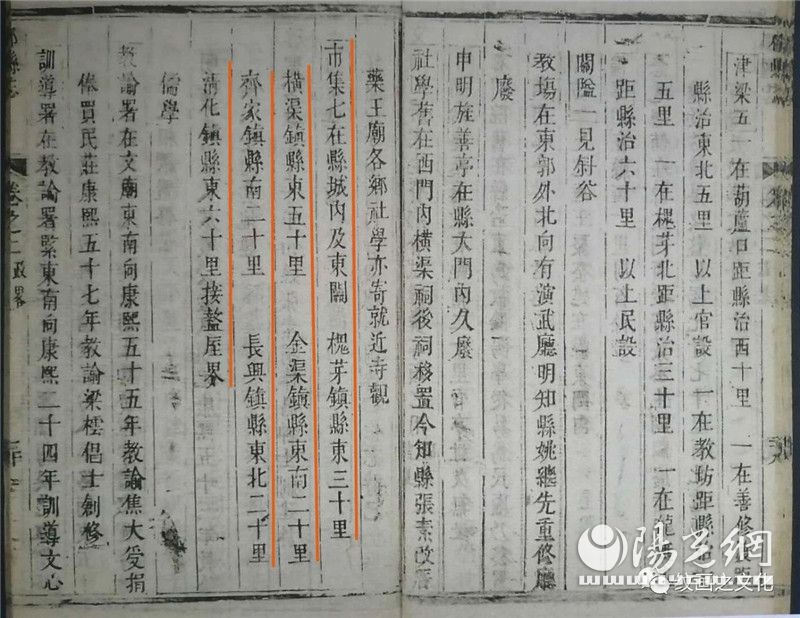 津梁五 一在葫蘆口距縣治西十里 一在善修 距
縣治東北五里 以上官設 一在教坊距縣治
五里 一在槐芽北距縣治三十里 一在
距縣治六十里 以上民設
關隘一見斜谷
教場在東郭外北向有演武廳明知縣姚繼先重修廳
廢
申明旌善亭在縣大門內久廢
社學舊在西門內橫渠祠後祠移置今知縣張素改
藥王廟各鄉社學亦寄就近寺觀
市集七在縣城內及東關 槐芽鎮縣東三十里
橫渠鎮縣東五十里 金渠鎮縣東南二十里
齊家鎮縣南二十里 長興鎮縣東北二十里
清化鎮縣東六十里接盩厔界
儒學
教諭署在文廟東南向康熙五十五年教諭焦大受捐
俸買民莊康熙五十七年教諭梁 倡士創修
訓導署在教諭署緊東南向康熙二十四年訓導文心
縣志
卷之二 政畧
陽光網
www.
纹画之文化